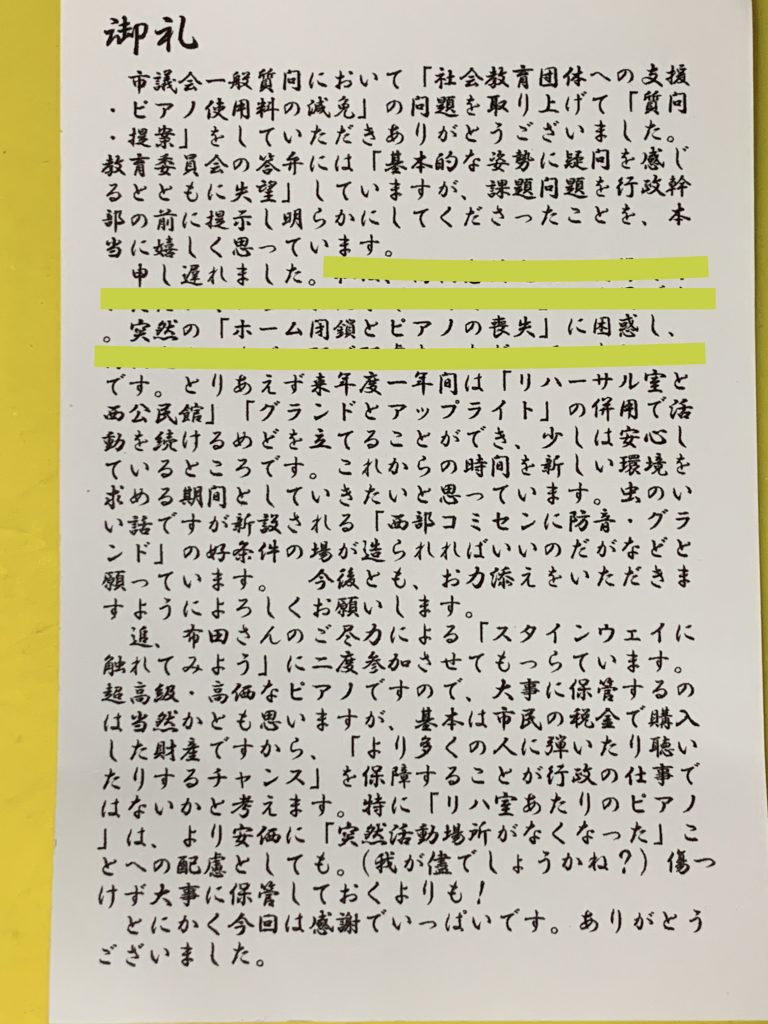 御礼
市議会一般質問において「社会教育団体への支援
・ピアノ使用料の減免」の問題を取り上げて「質問
・提案」をしていただきありがとうございました。
教育委員会の答弁には「基本的な姿勢に疑問を感じ
るとともに失望」していますが、課題問題を行政幹
部の前に提示し明らかにしてくださったことを、本
当に嬉しく思っています。
申し遅れました。
。突然の「ホーム閉鎖とピアノの喪失」に困惑し、
です。とりあえず来年度一年間は「リハーサル室と
西公民館」「グランドとアップライト」の併用で活
動を続けるめどを立てることができ、少しは安心し
ているところです。これからの時間を新しい環境を
求める期間としていきたいと思っています。虫のい
い話ですが新設される「西部コミセンに防音・グラ
ンド」の好条件の場が造られればいいのだがなどと
願っています。　今後とも、お力添えをいただきま
すようによろしくお願いします。
追、布田さんのご尽力による「スタインウェイに
触れてみよう」に二度参加させてもっらています。
超高級・高価なピアノですので、大事に保管するの
は当然かとも思いますが、基本は市民の税金で購入
した財産ですから、「より多くの人に弾いたり聴い
たりするチャンス」を保障することが行政の仕事で
はないかと考えます。特に「リハ室あたりのピアノ
」は、より安価に「突然活動場所がなくなった」こ
とへの配慮としても。(我が儘でしょうかね？)傷つ
けず大事に保管しておくよりも！
とにかく今回は感謝でいっぱいです。ありがとう
ございました。